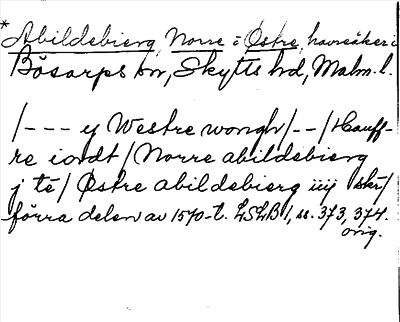 * Abildebierg, Norre = Östre, havreåker i
Bösarps sn, Skytts hd, Malm. l.
/--- y Westre wongh/--/Hauff-
re iordt/Norre abildebierg
j té/ Østre abildebierg iiij skr/
förra delen av 1570-t. LSLB 1, ss. 373, 374.
orig.